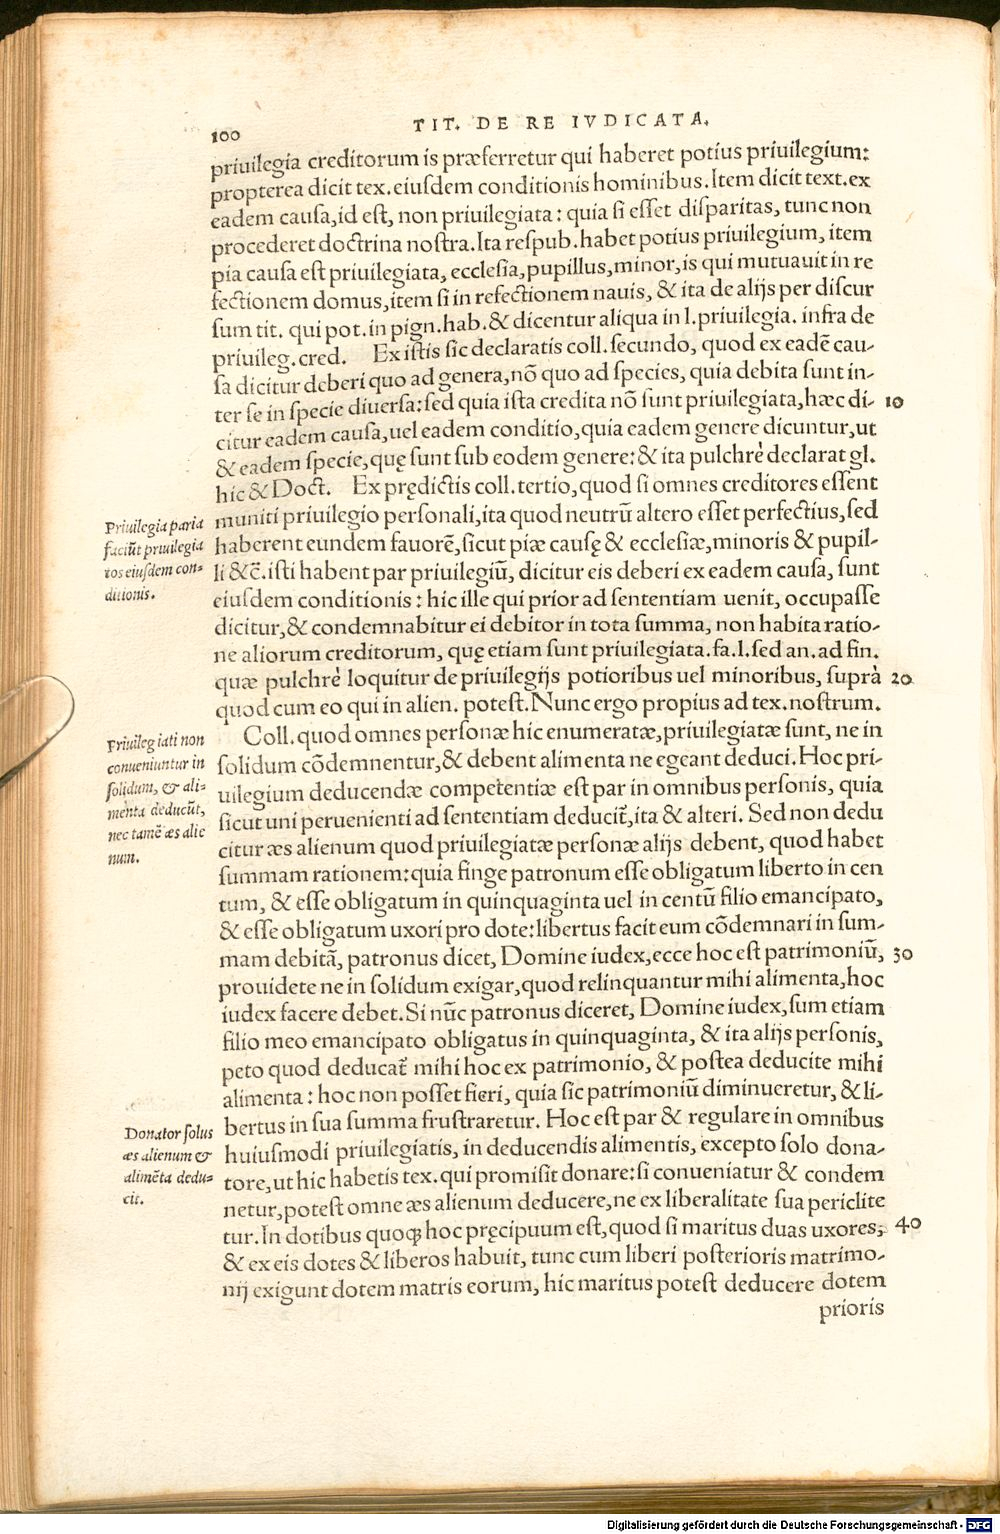 100
TIT. DE RE IVDICATA.
priuilegia creditorum is præferretur qui haberet potius priuilegium:
propterea dicit tex. eiuſdem conditionis hominibus. Item dicit text. ex
eadem cauſa, id eſt, non priuilegiata: quia ſi eſſet diſparitas, tunc non
procederet doctrina noſtra. Ita reſpub. habet potius priuilegium, item
pia cauſa eſt priuilegiata, eccleſia, pupillus, minor, is qui mutuauit in re
fectionem domus, item ſi in refectionem nauis, & ita de alijs per diſcur
ſum tit. qui pot. in pign. hab. & dicentur aliqua in l. priuilegia. infra de
priuileg. cred. Ex iſtis ſic declaratis coll. ſecundo, quod ex eadē cau-
ſa dicitur deberi quo ad genera, nō quo ad ſpecies, quia debita ſunt in-
ter ſe in ſpecie diuerſa: ſed quia iſta credita nō ſunt priuilegiata, hæc di- 10
citur eadem cauſa, uel eadem conditio, quia eadem genere dicuntur, ut
& eadem ſpecie, quę ſunt ſub eodem genere: & ita pulchrè declarat gl.
hic & Doct. Ex prędictis coll. tertio, quod ſi omnes creditores eſſent
muniti priuilegio perſonali, ita quod neutrū altero eſſet perfectius, ſed
haberent eundem fauorē, ſicut piæ cauſę & eccleſiæ, minoris & pupil-
li &c̄. iſti habent par priuilegiū, dicitur eis deberi ex eadem cauſa, ſunt
eiuſdem conditionis: hic ille qui prior ad ſententiam uenit, occupaſſe
dicitur, & condemnabitur ei debitor in tota ſumma, non habita ratio-
ne aliorum creditorum, quę etiam ſunt priuilegiata. fa. l. ſed an. ad fin.
quæ pulchrè loquitur de priuilegijs potioribus uel minoribus, ſuprà 20
quod cum eo qui in alien. poteſt. Nunc ergo propius ad tex. noſtrum.
Priuilegia paria
faciūt priuilegia
tos eiuſdem con-
ditionis.
Coll. quod omnes perſonæ hic enumeratæ, priuilegiatæ ſunt, ne in
ſolidum cōdemnentur, & debent alimenta ne egeant deduci. Hoc pri-
uilegium deducendæ competentiæ eſt par in omnibus perſonis, quia
ſicut uni peruenienti ad ſententiam deducit̄, ita & alteri. Sed non dedu
citur æs alienum quod priuilegiatæ perſonæ alijs debent, quod habet
ſummam rationem: quia finge patronum eſſe obligatum liberto in cen
tum, & eſſe obligatum in quinquaginta uel in centū filio emancipato,
& eſſe obligatum uxori pro dote: libertus facit eum cōdemnari in ſum-
mam debitā, patronus dicet, Domine iudex, ecce hoc eſt patrimoniū, 30
prouidete ne in ſolidum exigar, quod relinquantur mihi alimenta, hoc
iudex facere debet. Si nūc patronus diceret, Domine iudex, ſum etiam
filio meo emancipato obligatus in quinquaginta, & ita alijs perſonis,
peto quod deducat̄ mihi hoc ex patrimonio, & poſtea deducite mihi
alimenta: hoc non poſſet fieri, quia ſic patrimoniū diminueretur, & li-
bertus in ſua ſumma fruſtraretur. Hoc eſt par & regulare in omnibus
huiuſmodi priuilegiatis, in deducendis alimentis, excepto ſolo dona-
tore, ut hic habetis tex. qui promiſit donare: ſi conueniatur & condem
netur, poteſt omne æs alienum deducere, ne ex liberalitate ſua periclite
tur. In dotibus quoq; hoc pręcipuum eſt, quod ſi maritus duas uxores, 40
& ex eis dotes & liberos habuit, tunc cum liberi poſterioris matrimo-
nij exigunt dotem matris eorum, hic maritus poteſt deducere dotem
prioris
Priuilegiati non
conueniuntur in
ſolidum, & ali-
menta deducūt,
nec tamē æs alie
num.
Donator ſolus
æs alienum &
alimēta dedu-
cit.
Digitalisierung gefördert durch die Deutsche Forschungsgemeinschaft - DFG